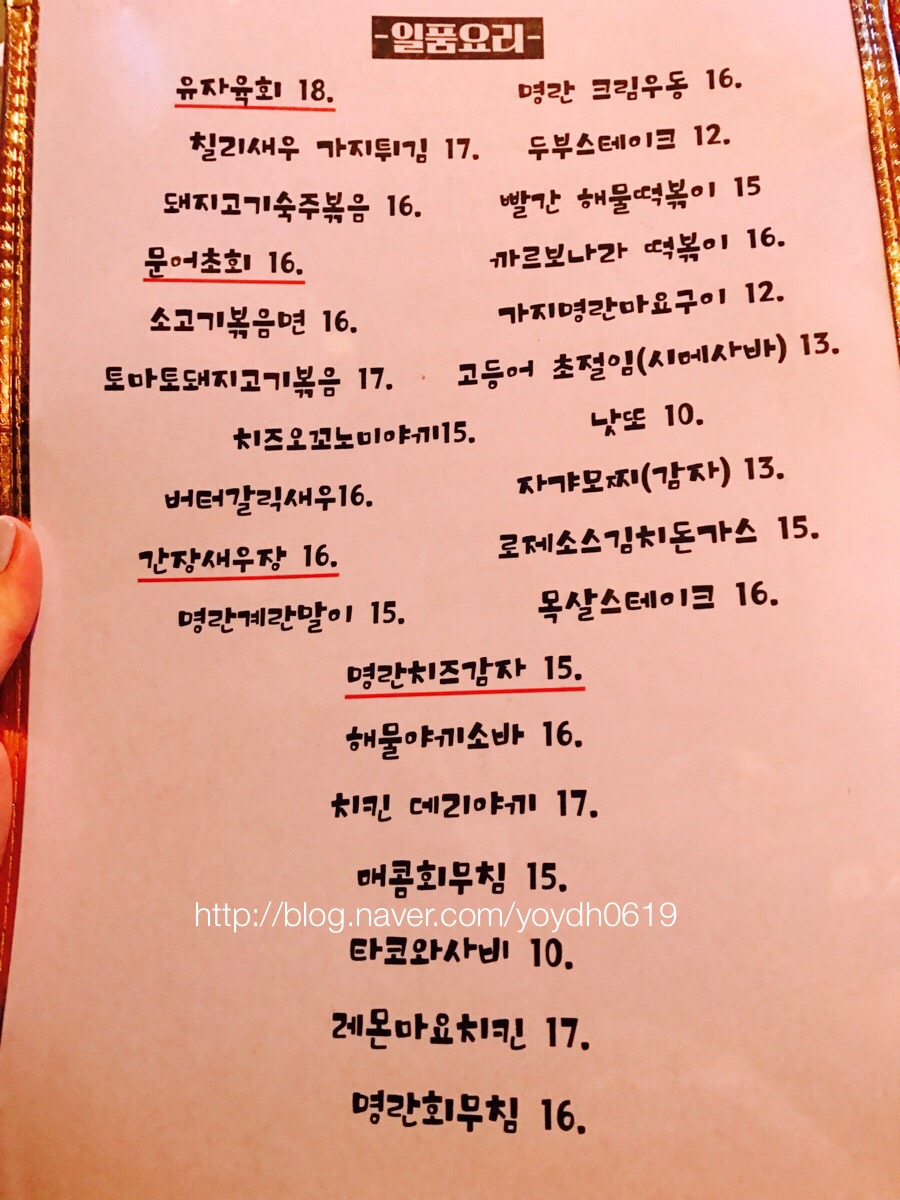 -일품요리-
유자육회 18.
칠리새우 가지튀김 17.
돼지고기숙주볶음 16.
문어초회 16.
소고기볶음면 16.
토마토돼지고기볶음 17.
치즈오꼬노미야끼15.
버터갈릭새우16.
간장새우장 16.
명란계란말이 15.
명란 크림우동 16.
두부스테이크 12.
빨간 해물떡볶이 15
까르보나라 떡볶이 16.
가지명란마요구이 12.
고등어 초절임(시메사바) 13.
낫또 10.
자캬모찌(감자) 13.
로제소스김치돈가스 15.
목살스테이크 16.
명란치즈감자 15.
해물야끼소바 16.
치킨 데리야끼 17.
매콤회무침 15.
http://blog.naver.com/yoydh0619
타코와사비 10.
레몬마요치킨 17.
명란회무침 16.